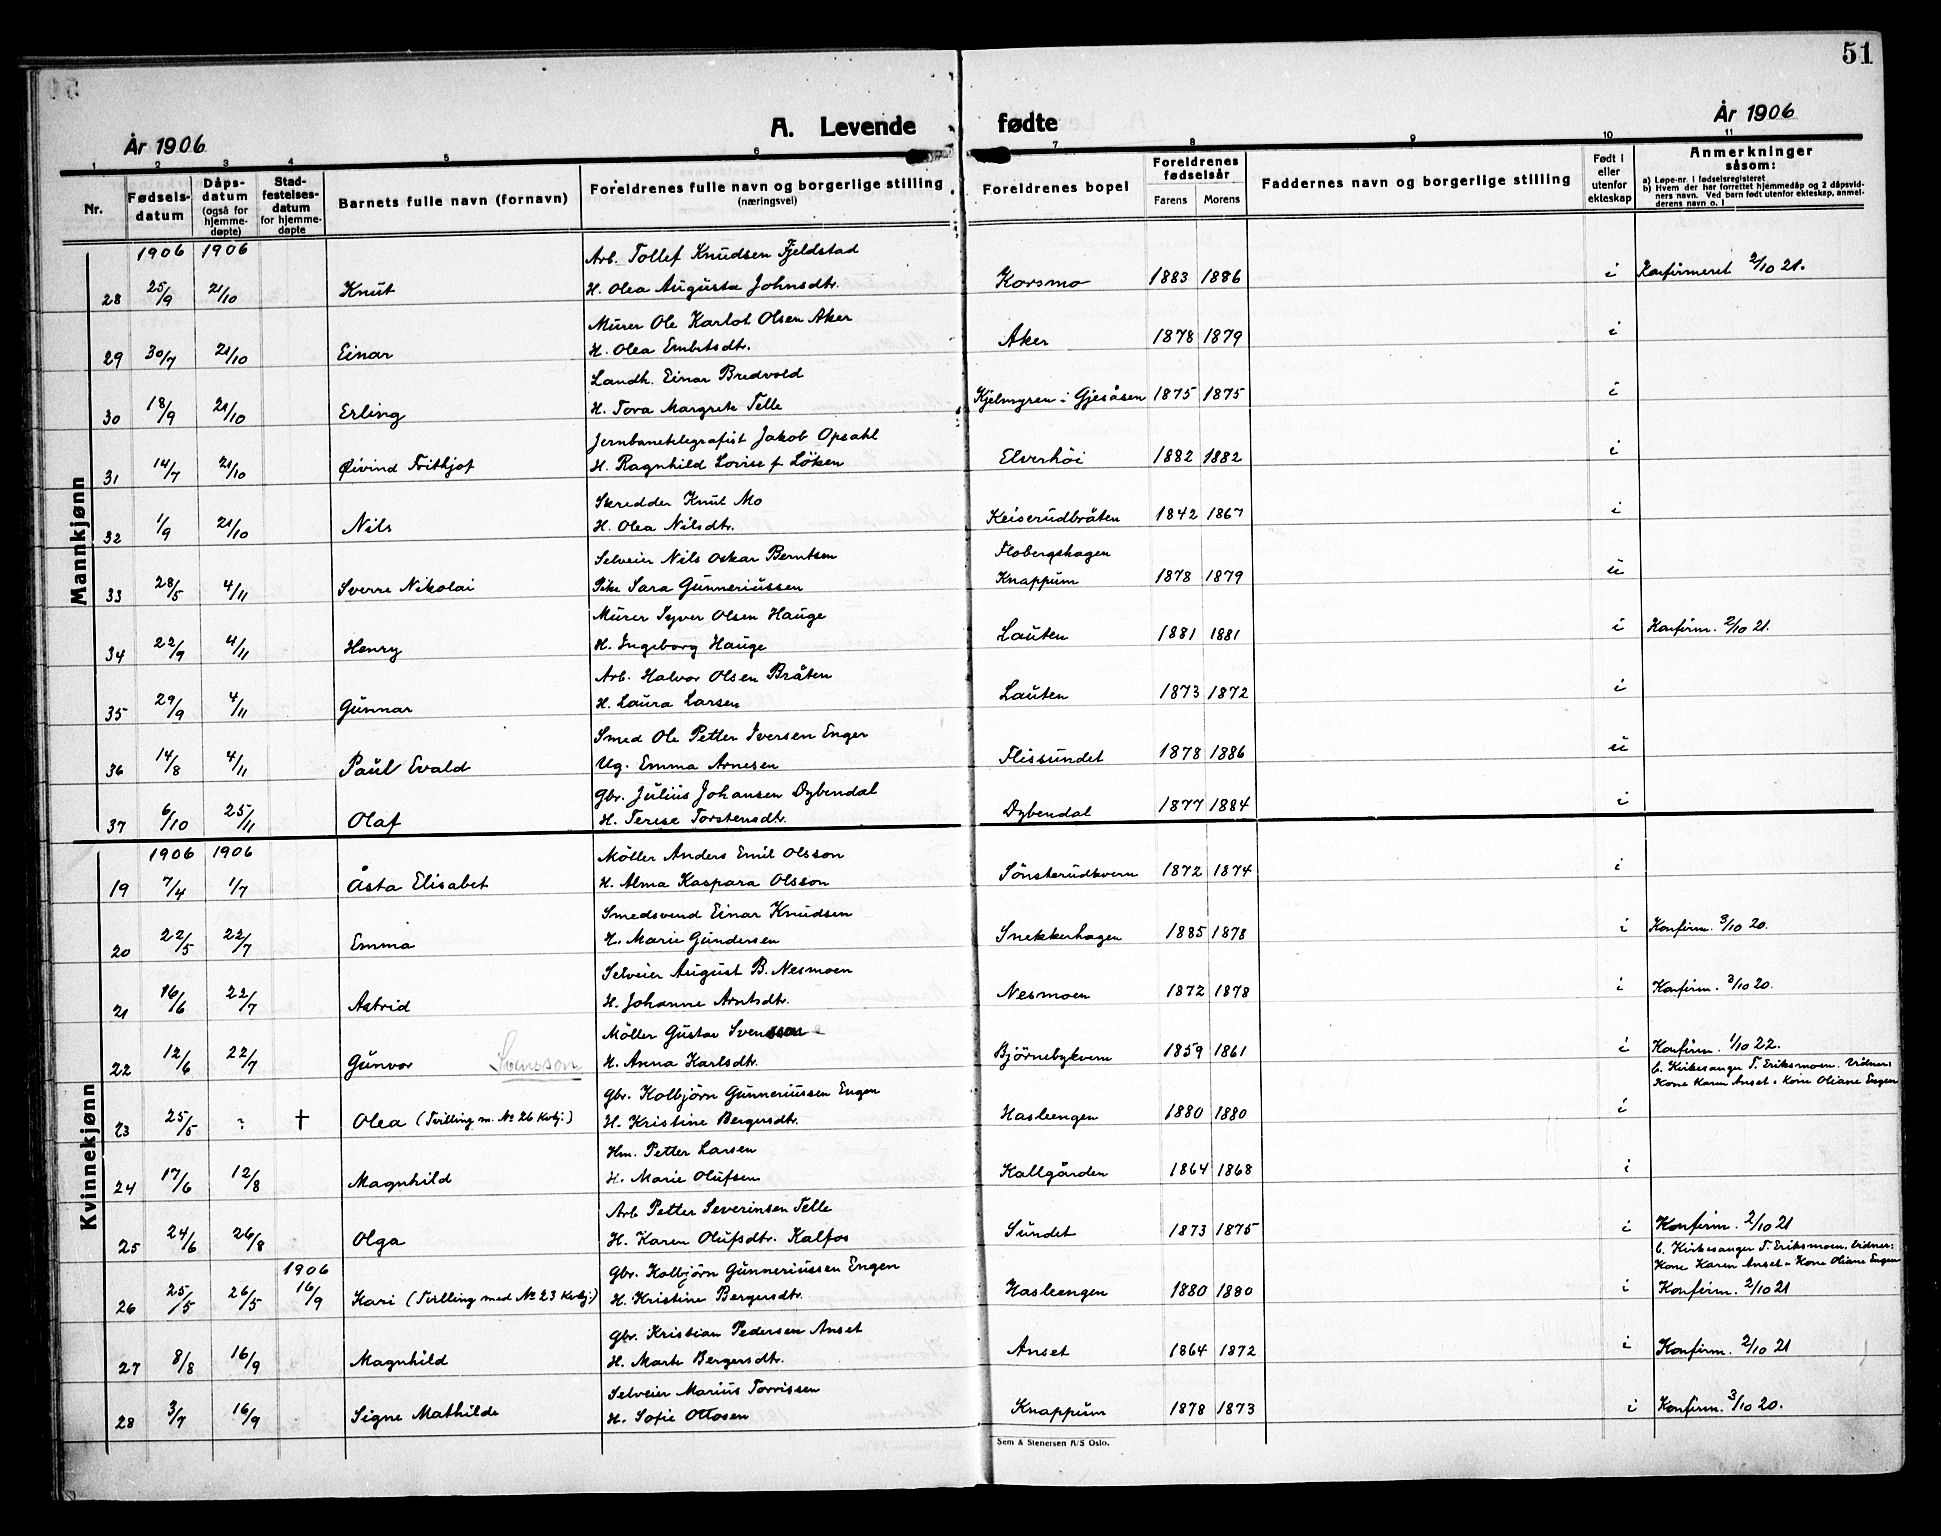 51
År 1906
A. Levende fødte
År 1906
1 2 3 4 5 6 7 8 9 10 11
Nr.
Fødsels-
datum
Dåps-
datum
(også for
hjemme-
døpte)
Stad-
festelses-
datum
for hjemme-
døpte
Barnets fulle navn (fornavn)
Foreldrenes fulle navn og borgerlige stilling
(næringsvei)
Foreldrenes bopel
Foreldrenes
fødselsår
Farens Morens
Faddernes navn og borgerlige stilling
Født i
eller
utenfor
ekteskap
Anmerkninger
såsom:
a) Løpe-nr. i fødselsregisteret
b) Hvem der har forrettet hjemmedåp og 2 dåpsvid-
ners navn. Ved barn født utenfor ekteskap, anmel-
derens navn o. l
Mannkjønn
1906 1906 Arb. Tollef Knudsen Fjeldstad
28 25/9 21/10 Knut H. Olea Augusta Johnsdtr. Korsmo 1883 1886 i Konfirmeret 2/10 21.
Murer Ole Karlot Olsen Aker
29 30/7 21/10 Einar H. Olea Embrtsdtr. Aker 1878 1879 i
Landh. Einar Bredvold
30 18/9 21/10 Erling H. Tova Margrete Telle Kjelmyren i Gjesåsen 1875 1875 i
Jernbanetelegrafist Jakob Opsahl
31 14/7 21/10 Øivind Fritjof H. Ragnhild Lovise f. Löken Elverhöi 1882 1882 i
Skredder Knut Mo
32 1/9 21/10 Nils H. Olea Nilsdtr. Keiserudbråten 1842 1867 i
Selveier Nils Oskar Berntsen Flobergshagen
33 28/5 4/11 Sverre Nikolai Pike Sara Gunneriussen Knappum 1878 1879 u
Murer Syver Olsen Hauge
34 22/9 4/11 Henry H. Ingeborg Hauge Lauten 1881 1881 i Konfirm. 2/10 21.
Arb. Halvor Olsen Bråten
35 29/9 4/11 Gunnar H. Laura Larsen Lauten 1873 1872 i
Smed Ole Petter Iversen Enger
36 14/8 4/11 Paul Evald Ug. Emma Arnesen Flissundet 1878 1886 u
Gbr. Julius Johansen Dybendal
37 6/10 25/11 Olaf H. Terese Torstensdtr. Dybendal 1877 1884 i
Kvinnekjønn
1906 1906 Möller Anders Emil Olsson
19 7/4 1/7 Åsta Elisabet H. Alma Kaspara Olsson Sönsterudkvern 1872 1874 i
Smedsvend Einar Knudsen
20 22/5 22/7 Emma H. Marie Gundersen Snekkerhagen 1885 1878 i Konfirm. 3/10 20.
Selveier August B. Nesmoen
21 16/6 22/7 Astrid H. Johanne Arntsdtr. Nesmoen 1872 1878 i Konfirm. 3/10 20.
Möller Gustav Svensson
22 12/6 22/7 Gunvor Svensson H. Anna Karlsdtr. Björnebykvern 1859 1861 i Konfirm. 1/10 22.
Gbr. Kolbjörn Gunneriussen Engen b. Kirkesanger T. Eriksmoen. Vidner:
Kone Karen Anset & Kone Oliane Engen
23 25/5 ? † Olea (Tvilling m. No 26 Kvkj.) H. Kristine Bergersdtr. Hasleengen 1880 1880 i
Hm. Petter Larsen
24 17/6 12/8 Magnhild H. Marie Olufsen Kallgården 1864 1868 i
Arb. Petter Severinsen Telle
25 24/6 26/8 Olga H. Karen Olufsdtr. Kalfos Sundet 1873 1875 i Konfirm. 2/10 21
1906 Gbr. Kolbjörn Gunneriussen Engen b. Kirkesanger T. Eriksmoen, Vidner:
Kone Karen Anset & Kone Oliane Engen
26 25/5 26/5 16/9 Kari (Tvilling med No 23 Kvkj.) H. Kristine Bergersdtr. Hasleengen 1880 1880 i Konfirm. 2/10 21
Gbr. Kristian Pedersen Anset
27 8/8 16/9 Magnhild H. Marte Bergersdtr. Anset 1864 1872 i Konfirm. 2/10 21
Selveier Marius Torvissen
28 3/7 16/9 Signe Mathilde H. Sofie Ottosen Knappum 1878 1873 i Konfirm. 3/10 20.
Sem & Stenersen A/S Oslo.